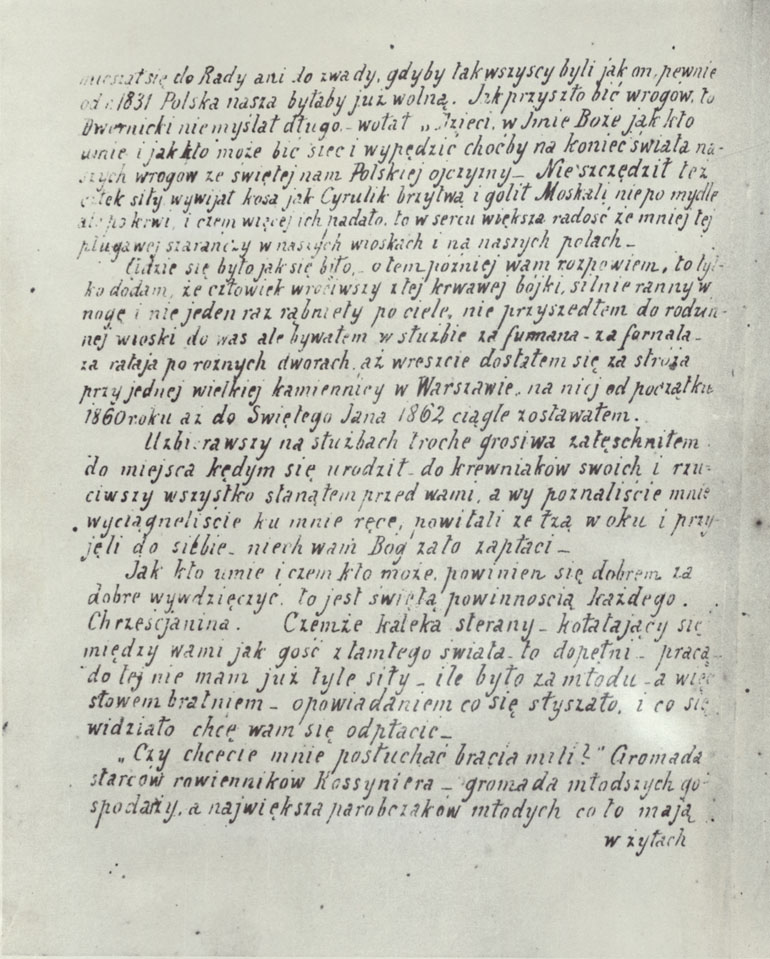 mieszał się do Rady ani do zwady, gdyby tak wszyscy byli jak on, pewnie
od r. 1831 Polska nasza byłaby już wolną. Jak przyszło bić wrogów, to
Dwernicki nie myślał długo – wołał „Dzieci, w Imie Boże jak kto
umie i jak kto może bić siec i wypędzić choćby na koniec świata na-
szych wrogów ze swiętej nam Polskiej ojczyzny – Nie szczędził też
człek siły wywijał kosa jak Cyrulik brzytwa i golił Moskali nie po mydle
ale po krwi, i czem więcej ich nadało, to w sercu większa radość że mniej tej
plugawej szarańczy w naszych wioskach i na naszych polach –
Gdzie się było jak się biło, – o tem pózniej wam rozpowiem, to tyl-
ko dodam, że człowiek wróciwszy z tej krwawej bójki, silnie ranny w
nogę i nie jeden raz rąbniety po ciele, nie przyszedłem do rodzin-
nej wioski do was ale bywałem w służbie za furmana – za fornala –
za rataja po roznych dworach, aż wreszcie dostałem się za stroża
przy jednej wielkiej kamiennicy w Warszawie, na niej od początku
1860 roku aż do Swiętego Jana 1862 ciągle zostawałem.
Uzbierawszy na służbach troche grosiwa zatęschniłem
do miejsca kędym się urodził – do krewniaków swoich i rzu-
ciwszy wszystko stanąłem przed wami, a wy poznaliście mnie
wyciągneliście ku mnie ręce, powitali ze łzą w oku i przy-
jęli do siebie – niech wam Bóg zato zapłaci –
Jak kto umie i czem kto może, powinien się dobrem za
dobre wywdzięczyć, to jest swiętą powinnoscią każdego
Chrzescjanina. Czemże kaleka sterany – kołatający się
między wami jak gość z tamtego swiata – to dopełni – pracą –
do tej nie mam już tyle siły – ile było za młodu – a więc
słowem bratniem – opowiadaniem co się słyszało, i co się
widziało chcę wam się odpłacić –
„Czy chcecie mnie posłuchać bracia mili?" Gromada
starców rowienników Kossyniera – gromada młodszych go-
spodarzy, a największa parobczaków młodych co to mają
w żyłach